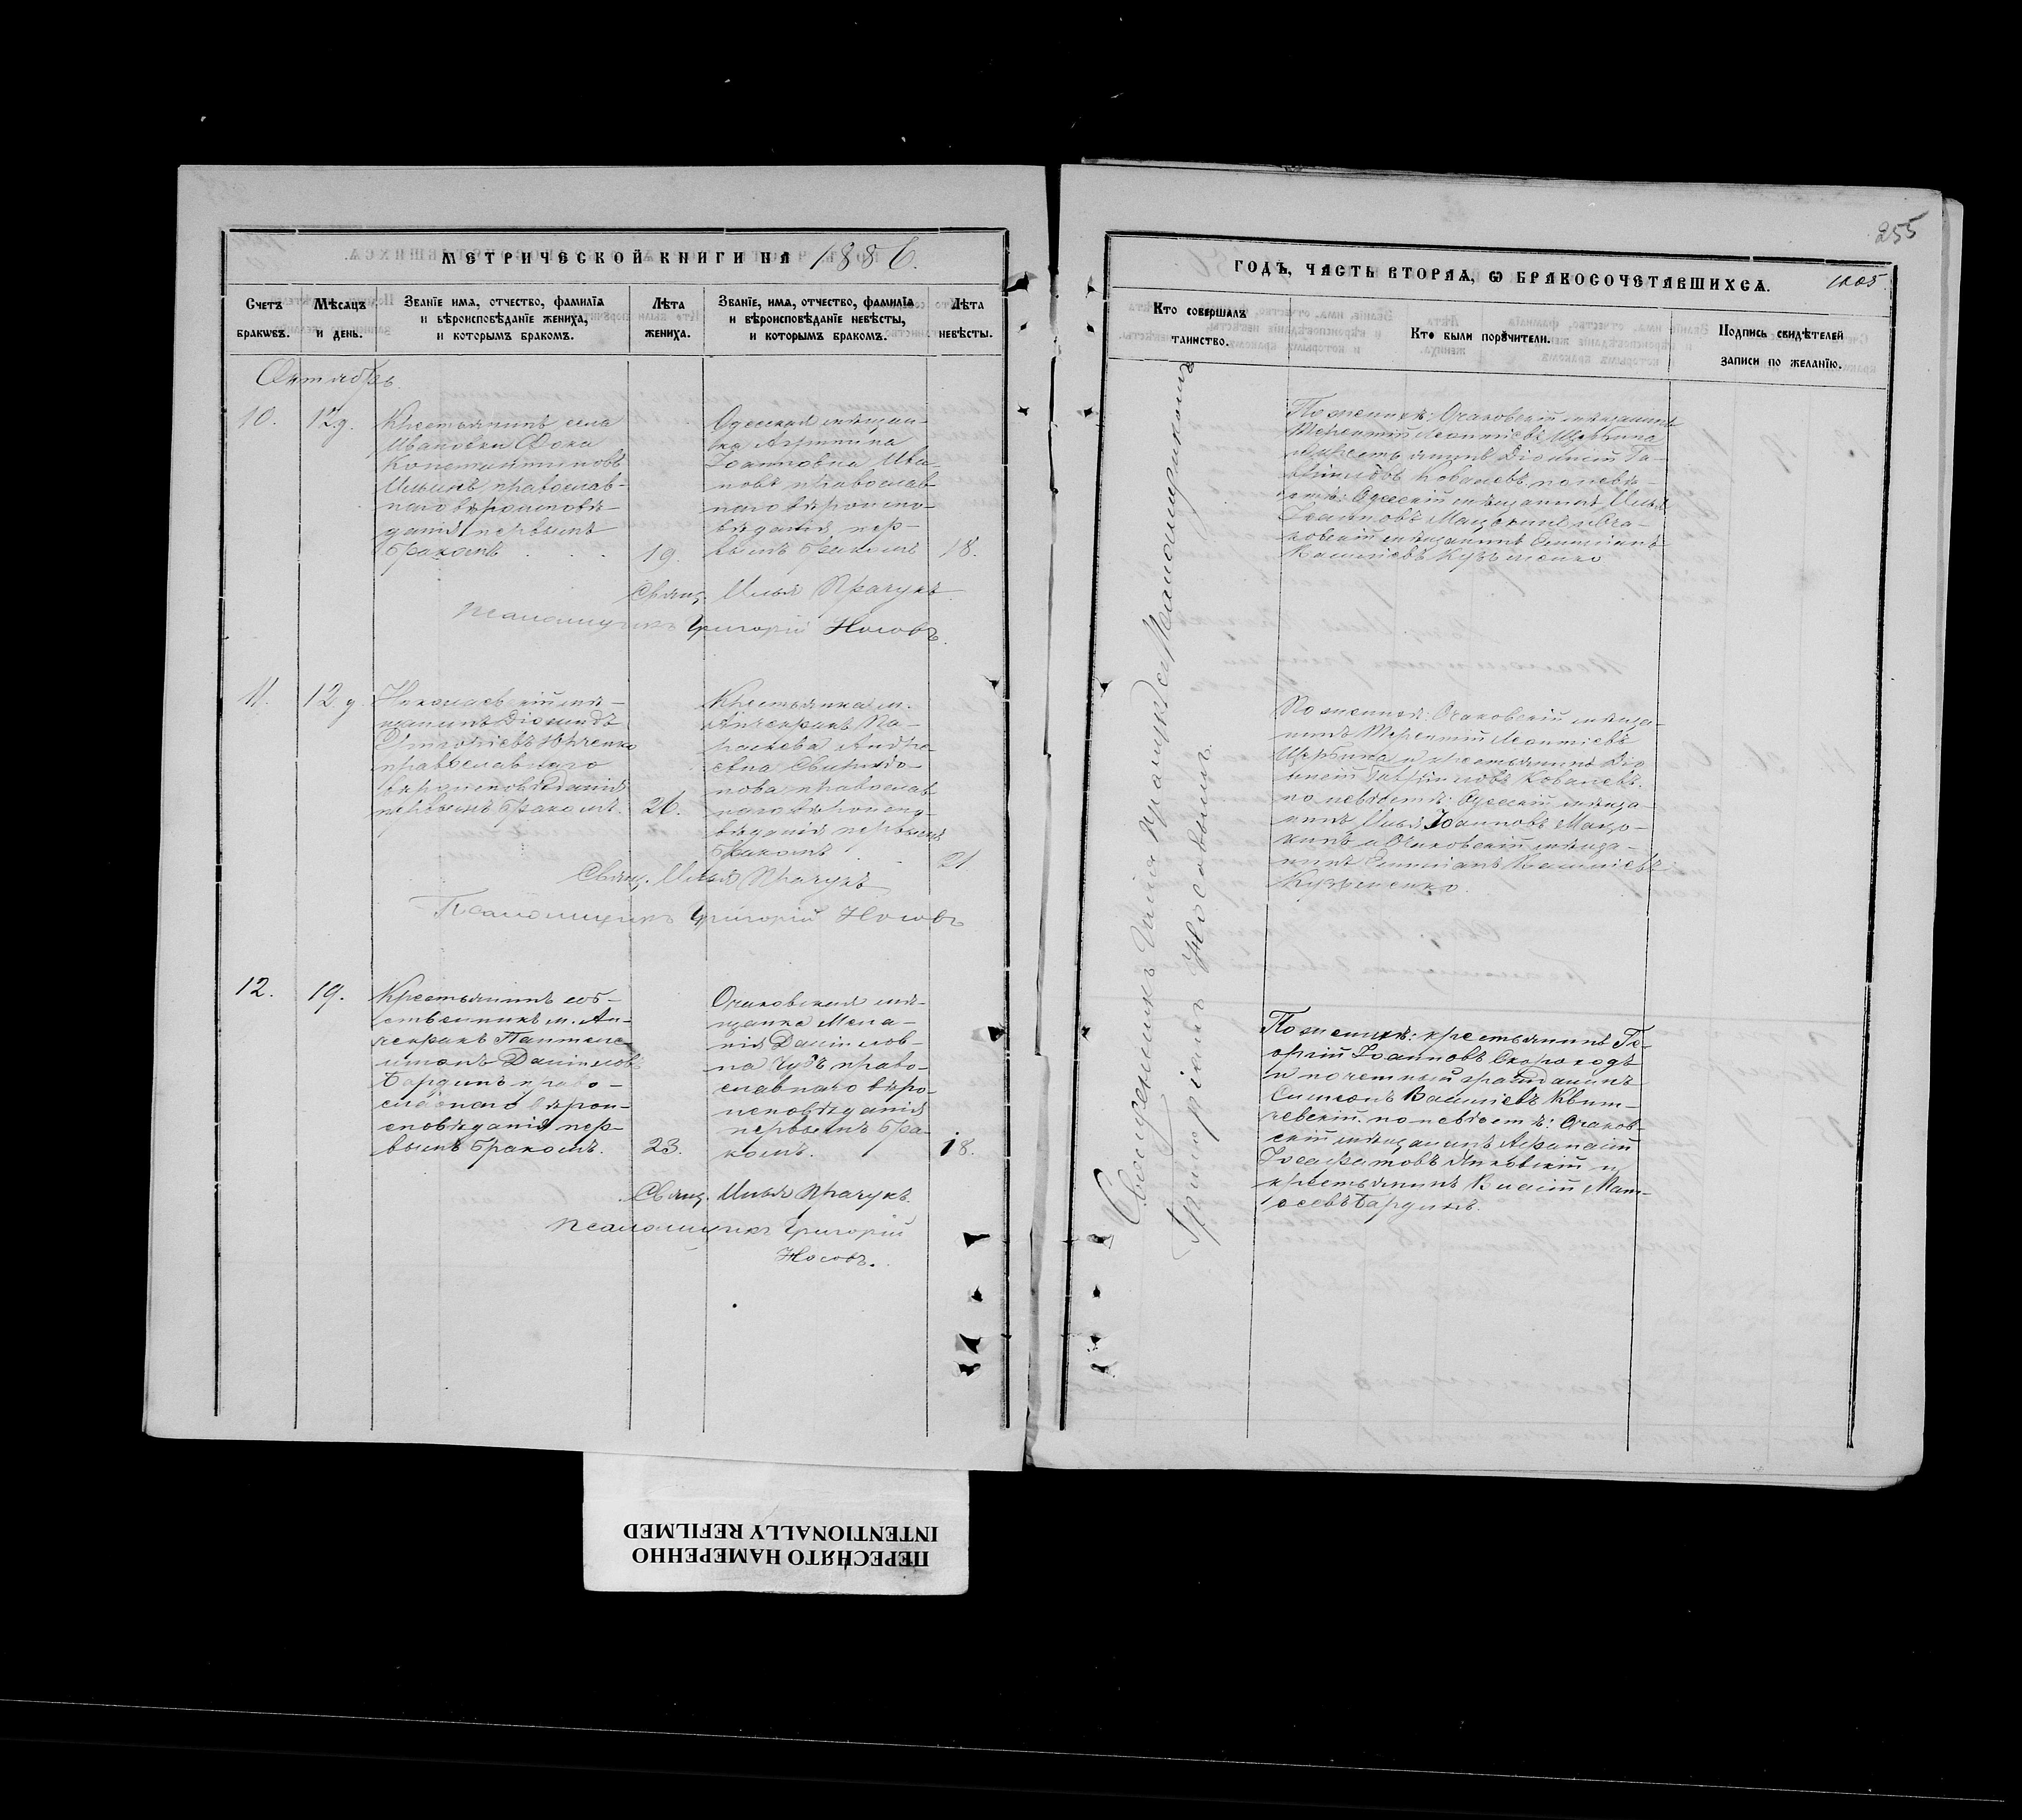 МЕТРИЧЕСКОЙ КНИГИ НА 1886.
Счетъ браковъ.
Мѣсяцъ и день.
Званіе имя, отчество, фамилія и вѣроисповѣданіе жениха, и которымъ бракомъ.
Лѣта жениха.
Званіе, имя, отчество, фамилія и вѣроисповѣданіе невѣсты, и которымъ бракомъ.
Лѣта невѣсты.
Октябрь.
10.
12 д.
Крестьянинъ села
Ивановки Фока
Константиновъ
Ильинъ, православ-
наго вѣроисповѣ-
данія первымъ
бракомъ
19.
Одесская мѣщан-
ка Агрипина
Іоанновна Ива-
нова православ-
наго вѣроиспо-
вѣданія пер-
вымъ бракомъ
18.
Свящ. Илья Прачукъ
Псаломщикъ Григорій Носовъ.
11.
12 д.
Николаевскій мѣ-
щанинъ Діомидъ
Григоріевъ Юрченко
православнаго
вѣроисповѣданія
первымъ бракомъ.
26.
Крестьянка м.
Анчекракъ Па-
раскева Андре-
евна Свиридо-
нова православ-
наго вѣроиспо-
вѣданія первымъ
бракомъ
21
Свящ. Илья Прачукъ
Псаломщикъ Григорій Носовъ
12.
19.
Крестьянинъ соб-
ственникъ м. Ан-
чекракъ Пантеле-
имонъ Даніиловъ
Бардинъ право-
славнаго вѣрои-
сповѣданія пер-
вымъ бракомъ.
23.
Очаковская мѣ-
щанка Мела-
нія Даніилов-
на Чубъ право-
славнаго вѣро-
исповѣданія
первымъ бра-
комъ.
18.
Свящ. Илья Прачукъ
Псаломщикъ Григорій
Носовъ.
255
ГОДЪ, ЧАСТЬ ВТОРАЯ, Ѡ БРАКОСОЧЕТАВШИХСЯ.
Кто совершалъ таинство.
Кто были порꙋчители.
Подпись свидѣтелей записи по желанію.
Священникъ Илія Прачукъ съ Псаломщикомъ
Григоріемъ Носовымъ.
По женихѣ: Очаковскій мѣщанинъ
Терентій Леонтіевъ Щербина
и крестьянинъ Діонисій Га-
вриловъ Ковалевъ, по невѣ-
стѣ: Одесскій мѣщанинъ Илья
Іоанновъ Мацокинъ и Оча-
ковскій мѣщанинъ Емиліанъ
Василіевъ Кузьменко
По женихѣ: Очаковскій мѣща-
нинъ Терентій Леонтіевъ
Щербина и крестьянинъ Діо-
нисій Гавриловъ Ковалевъ.
по невѣстѣ: Одесскій мѣща-
нинъ Илья Іоанновъ Мацо-
кинъ и Очаковскій мѣща-
нинъ Емиліанъ Василіевъ
Кузьменко.
По женихѣ: крестьянинъ Ге-
оргій Іоанновъ Скороходъ
и почетный гражданинъ
Симеонъ Василіевъ Квит-
чевскій. по невѣстѣ: Очаков-
скій мѣщанинъ Афанасій
Іосафатовъ Янковскій и
крестьянинъ Власій Мат-
ѳеевъ Бардинъ.
ПЕРЕСНЯТО НАМЕРЕННО
INTENTIONALLY REFILMED